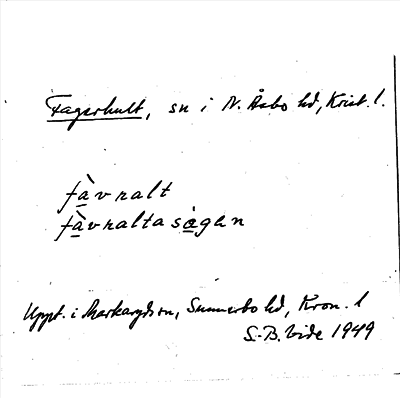 Fagerhult, sn i N. Åsbo hd, Krist. l.
fàvralt
fàvraltasògen
Uppt. i Markaryds sn, Sunnerbo hd, Kron. l
S.-B. Vide 1949